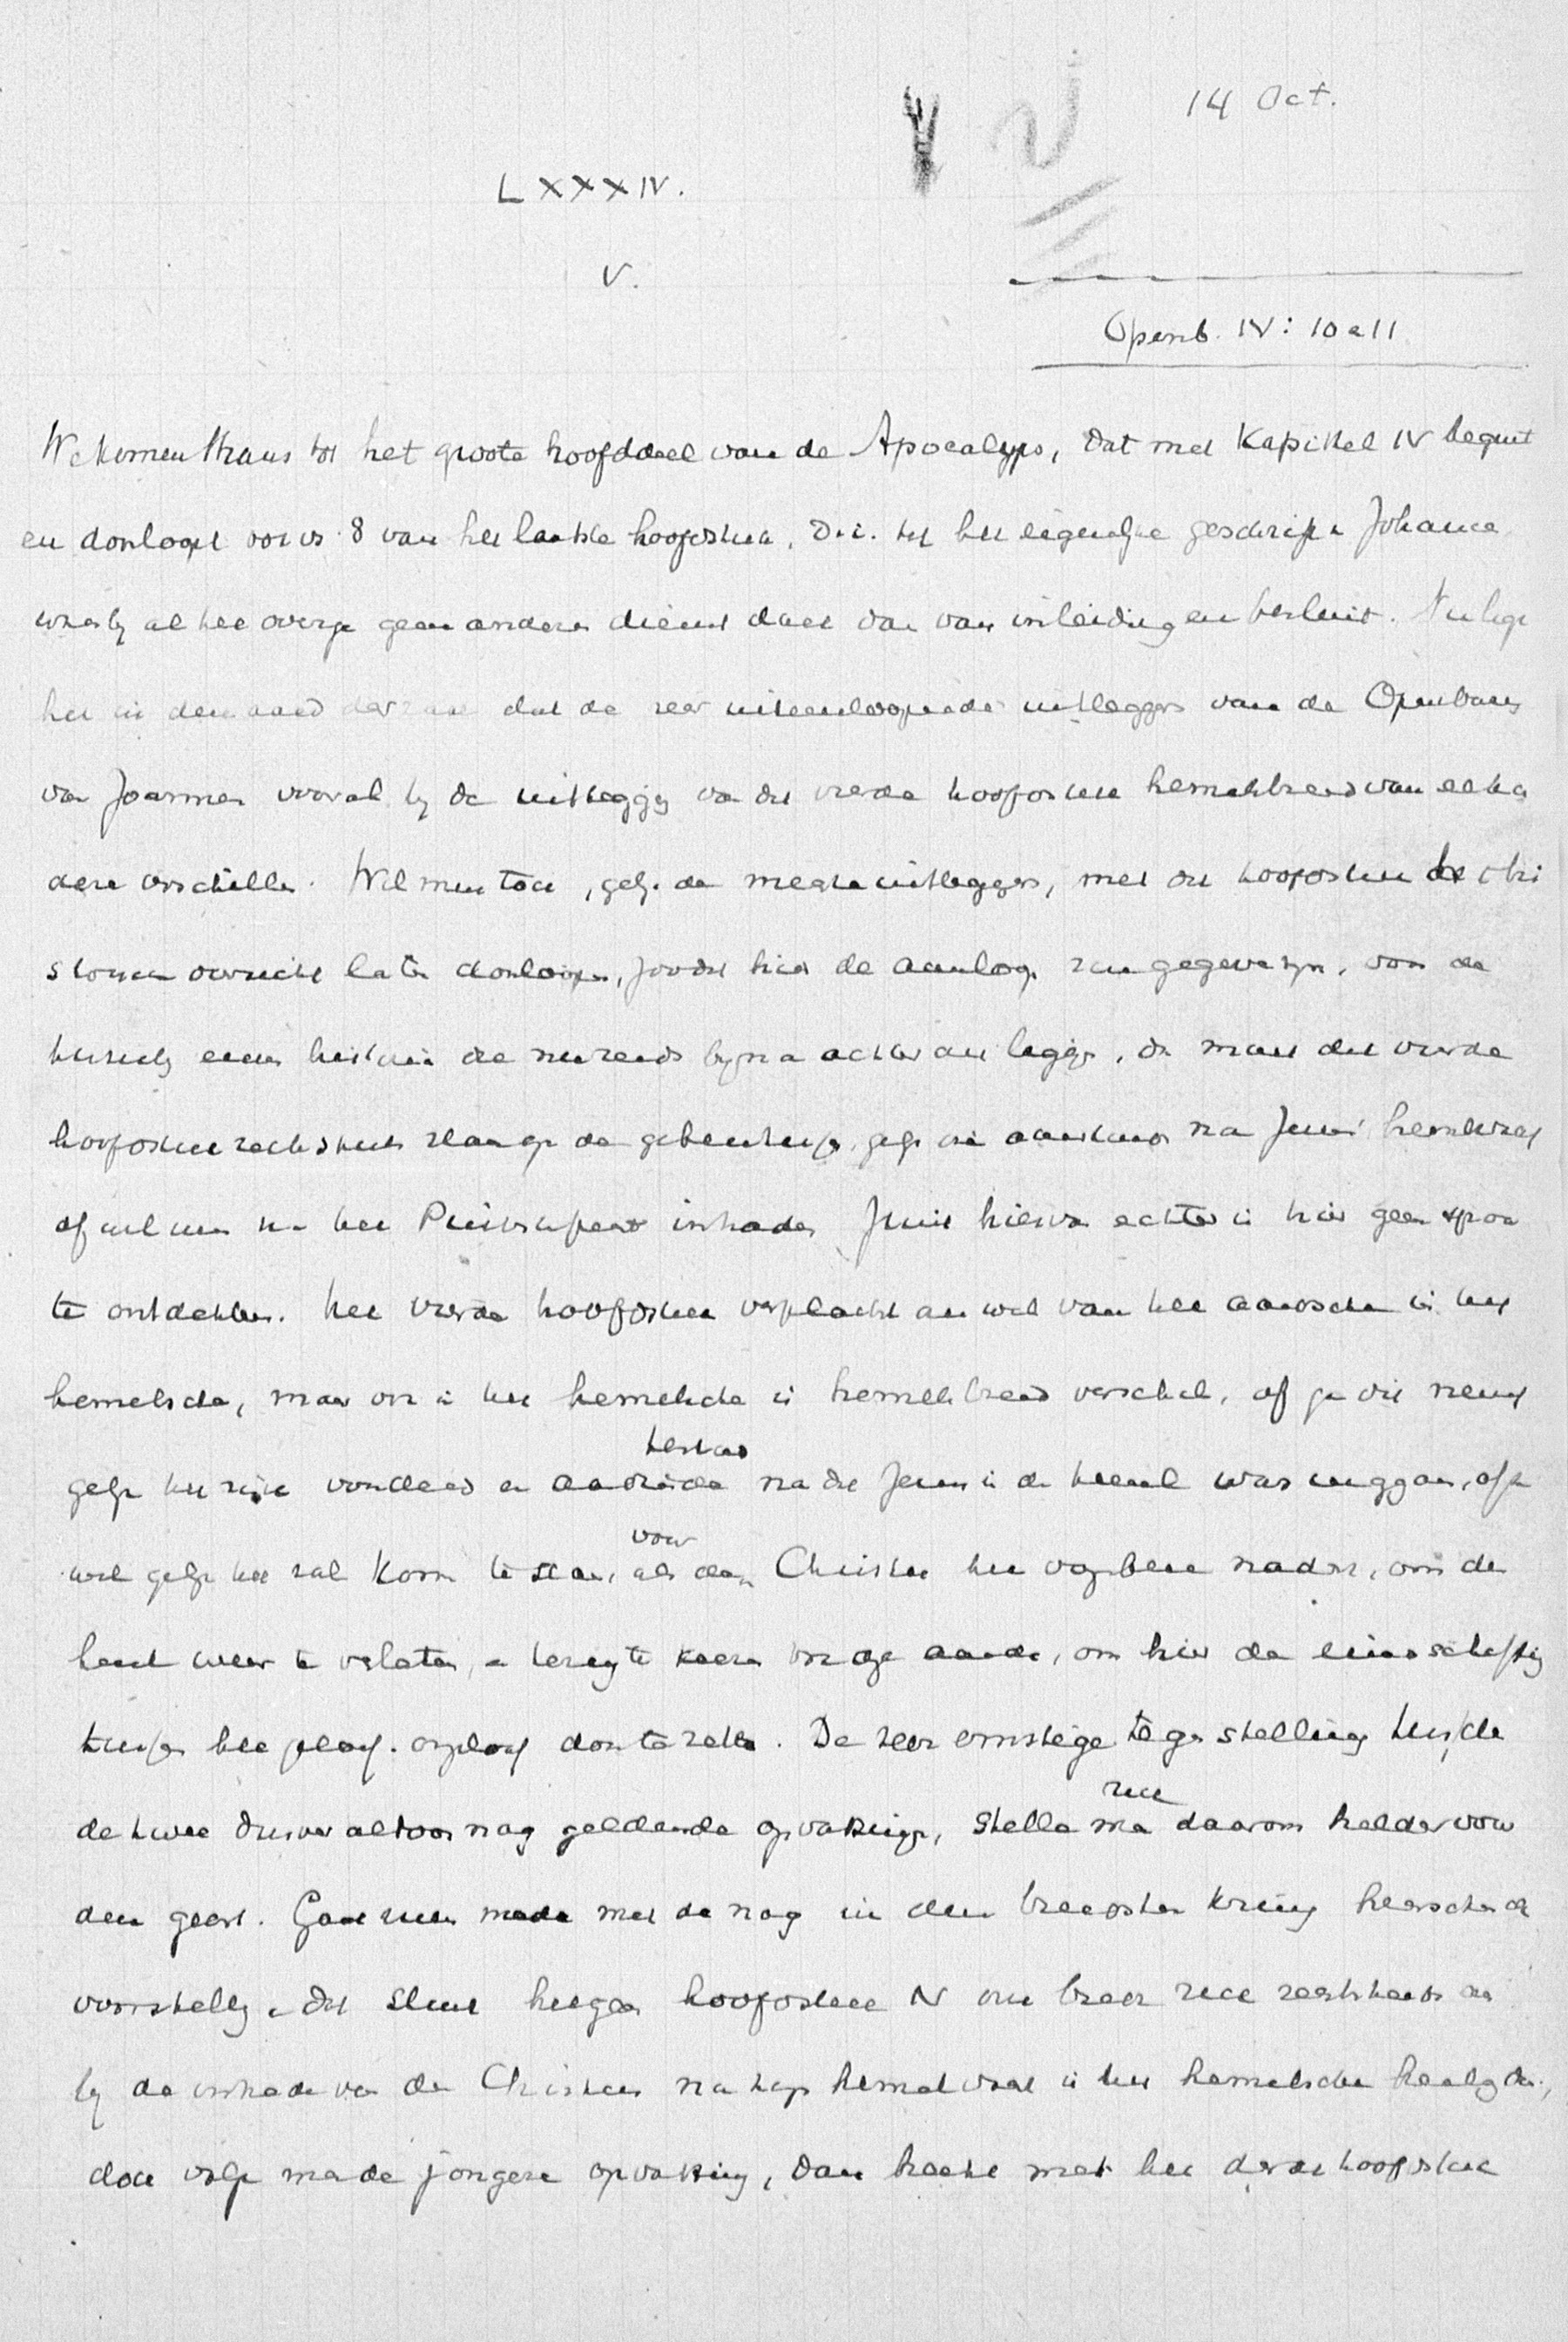 14 Oct.
LXXXIV.
V.
Openb. IV: 10 a 11
We komen thans tot het groote hoofddeel van de Apocalyps, dat met Kapittel IV begint
en doorloopt voor vs 8 van het laatste hoofdstuk. D.i. tot het eigenlijke geschrift Johannes
waarbij al het overige geen anderen dienst doet dan van inleiding en besluit. Nu ligt
het in den aard der zaak dat de zeer uiteenloopende uitleggers van de Openbaring
van Joannes vooral bij de uitlegging van dit vierde hoofdstuk hemelsbreed van elka
dere verschillen. Wil men toch, gelijk de meeste uitleggers, met dit hoofdstuk het chri
overzicht laten doorloopen, zoodat hier de aanloop zou gegeven zijn, van de
historie die nu reeds bijna achter ons ligt, dan moet dit vierde
hoofdstuk rechtstreeks slaan op de gebeurtenis, gelijk die aanstonds na Jezus' hemelvaart
of wil men na het Pinksterfeest intraden. Juist hiervan echter is hier geen spoor
te ontdekken. Het vierde hoofdstuk verplaatst ons wel van het aardsche in het
hemelsche, maar ook in het hemelsche is hemelsbreed verschil, of ge dit neemt
gelijk het zijn voordeed en aanstonds bestond na dat Jezus in de hemel was ingegaan, of
wel gelijk het zal komen te staan, als voor den Christus het oogenblik nadert, om den
hemel weer te verlaten, en terug te keeren op aarde, om hier de eindschifting
tusschen het geloof en ongeloof door te zetten. De zeer ernstige tegenstelling tusschen
de twee dusver altoos nog geldende opvattingen, stelle men zich daarom helder voor
den geest. Gaat men mede met de nog in den breedsten kring heerschende
voorstelling, dan sluit hetgeen hoofdstuk IV ons biedt zich rechtstreeks aan
bij de intrede van den Christus na zijn hemelvaart in het hemelsche heiligdom,
doch volgt men de jongere opvatting, dan hoort met het derde hoofdstuk